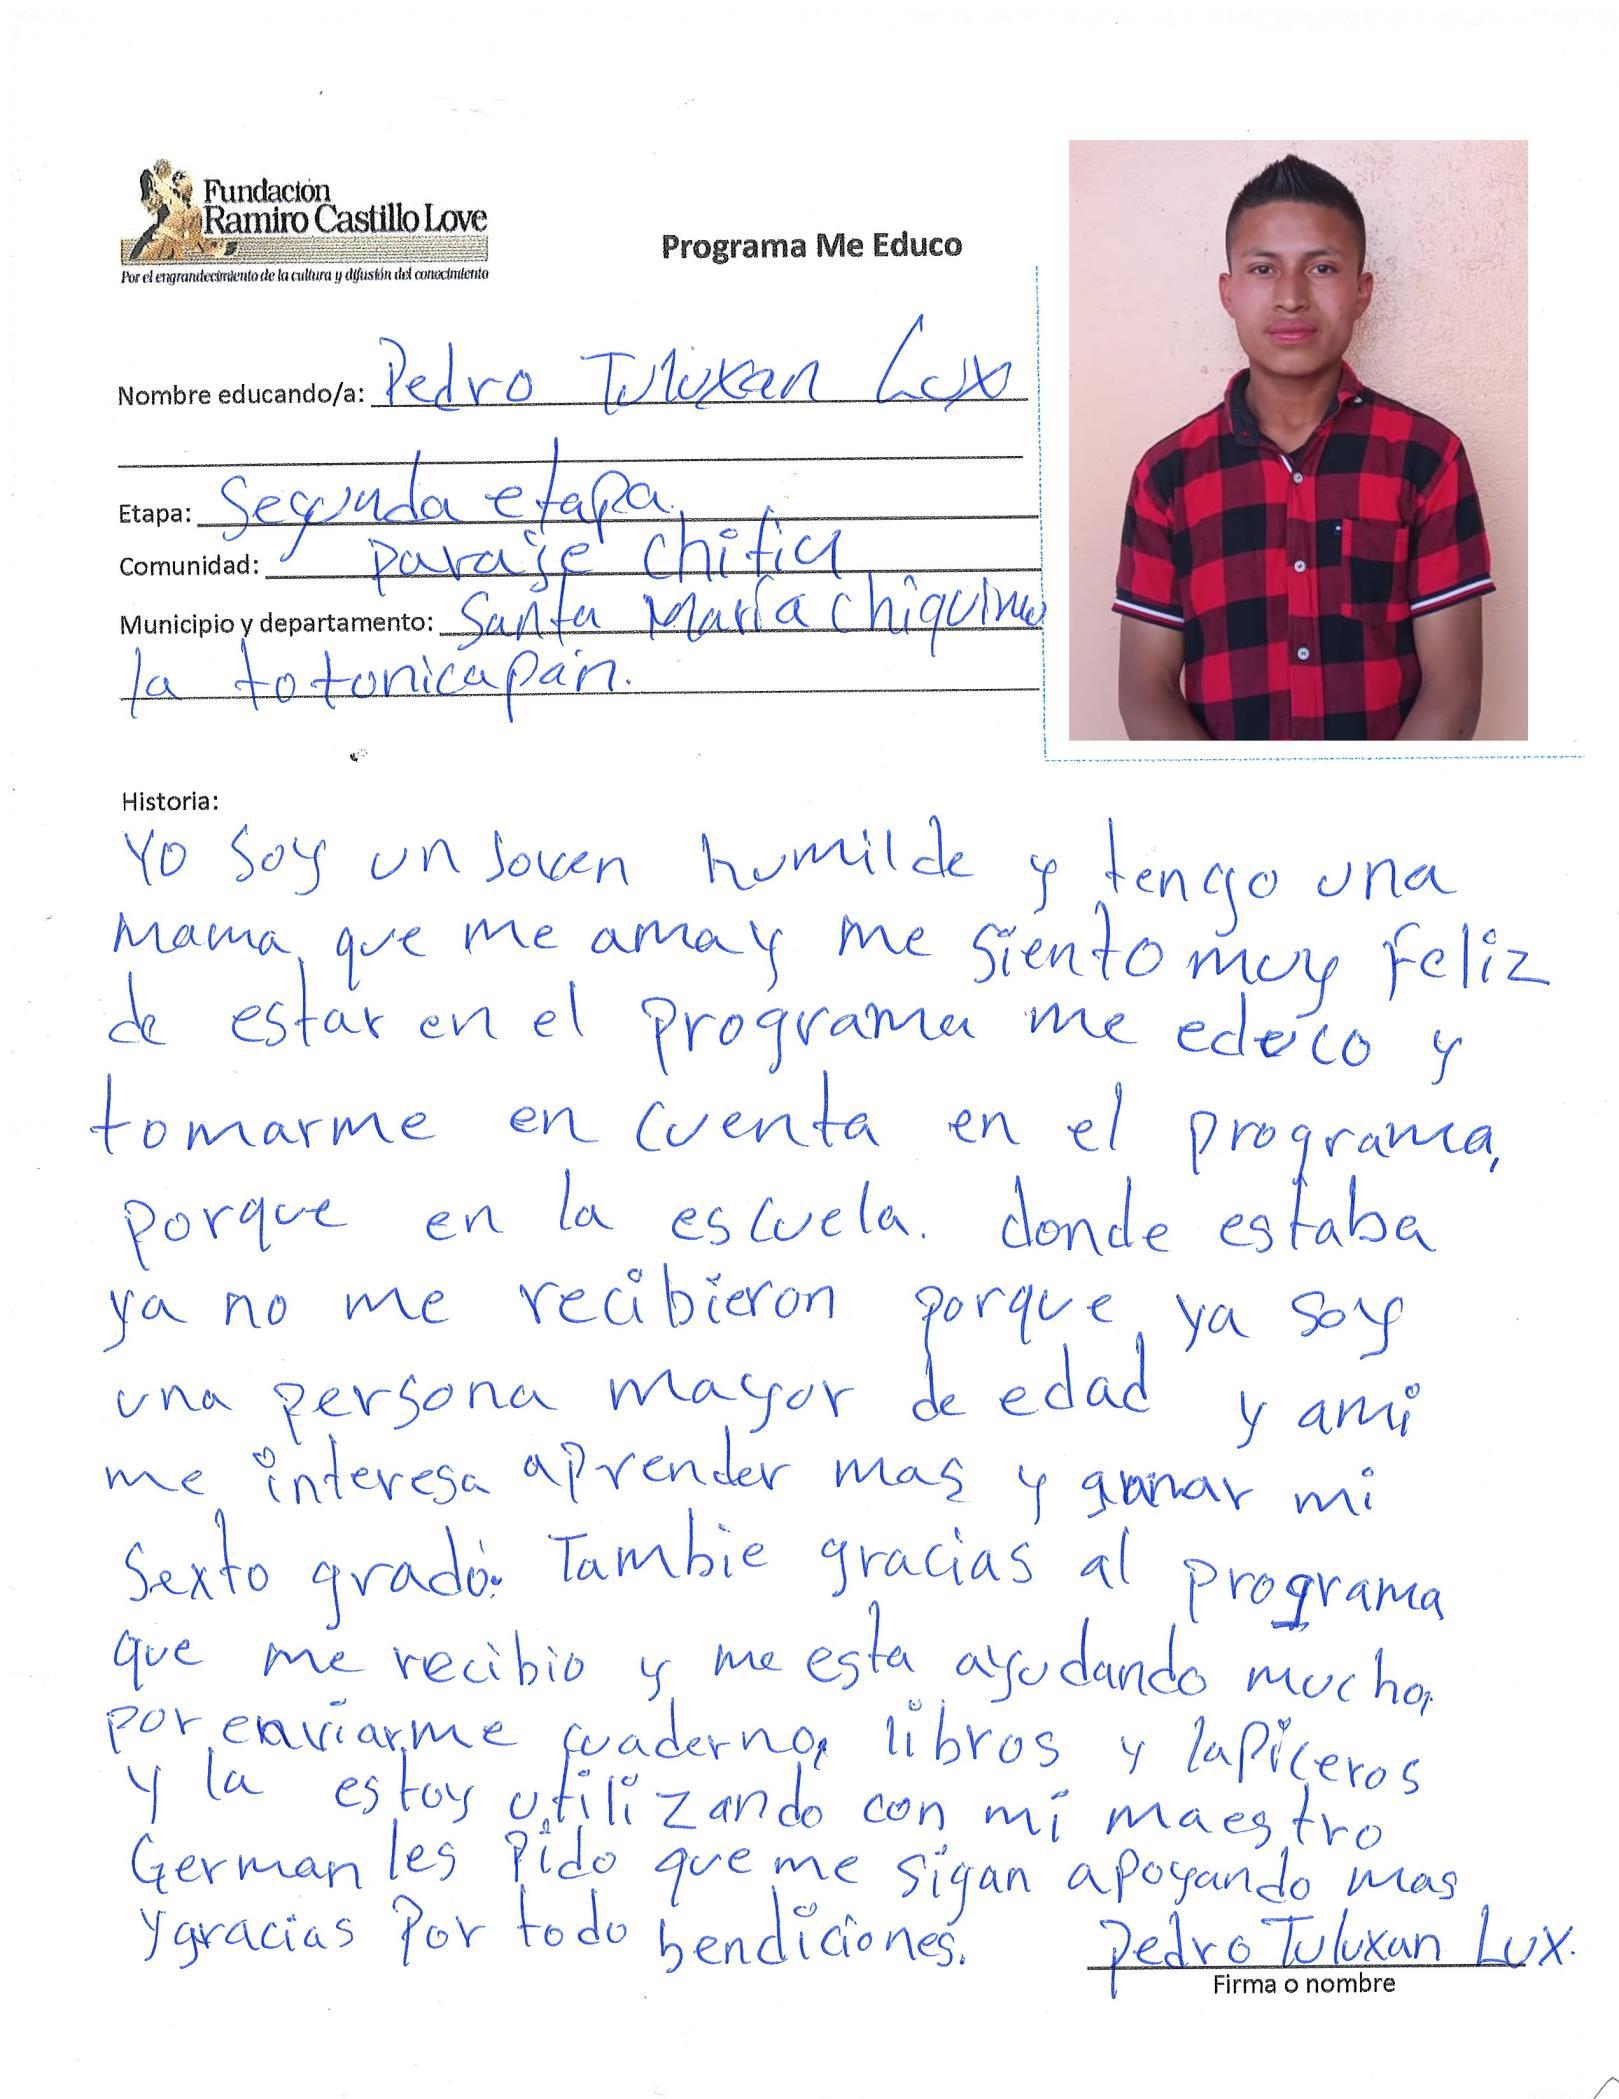 Fundación
Ramiro Castillo Love
Por el engrandecimiento de la cultura y difusión del conocimiento
Programa Me Educo
Nombre educando/a: Pedro Tuluxan Lux
Etapa: Segunda etapa.
Comunidad: paraje chifiu
Municipio y departamento: Santa María chiquimu
la totonicapán.
Historia:
Yo soy un Joven humilde y tengo una
Mama, que me ama y me siento muy feliz
de estar en el programa me edeuco y
tomarme en cuenta en el programa,
porque en la escuela. donde estaba
ya no me recibieron porque, ya soy
una persona mayor de edad y ami
me, interesa aprender mas y ganar mi
Sexto grado. Tambie gracias al programa
que me recibio y me esta ayudando mucho,
por enviarme cuaderno, libros y lapiceros
y la estoy utilizando con mi maestro
German les pido que me sigan apoyando mas
y gracias por todo bendiciones.
Pedro Tuluxan Lux.
Firma o nombre